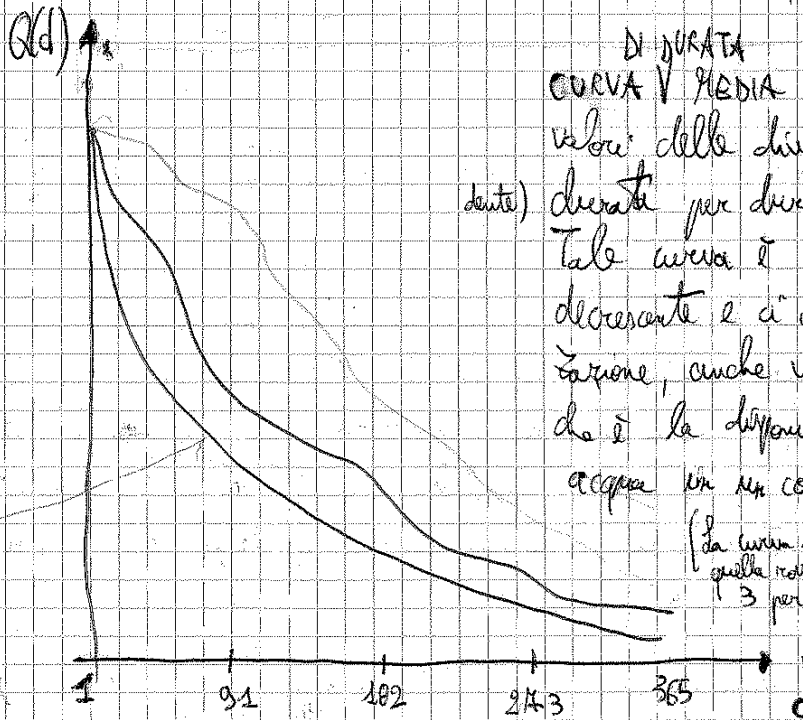 Q(d)
DI DURATA
CURVA V MEDIA
valori delle
dente) durate per
Tale curva è
decrescente e ci
zazione, anche
che è la
acqua in un
(La curva
quella
3 per
1 91 182 273 365